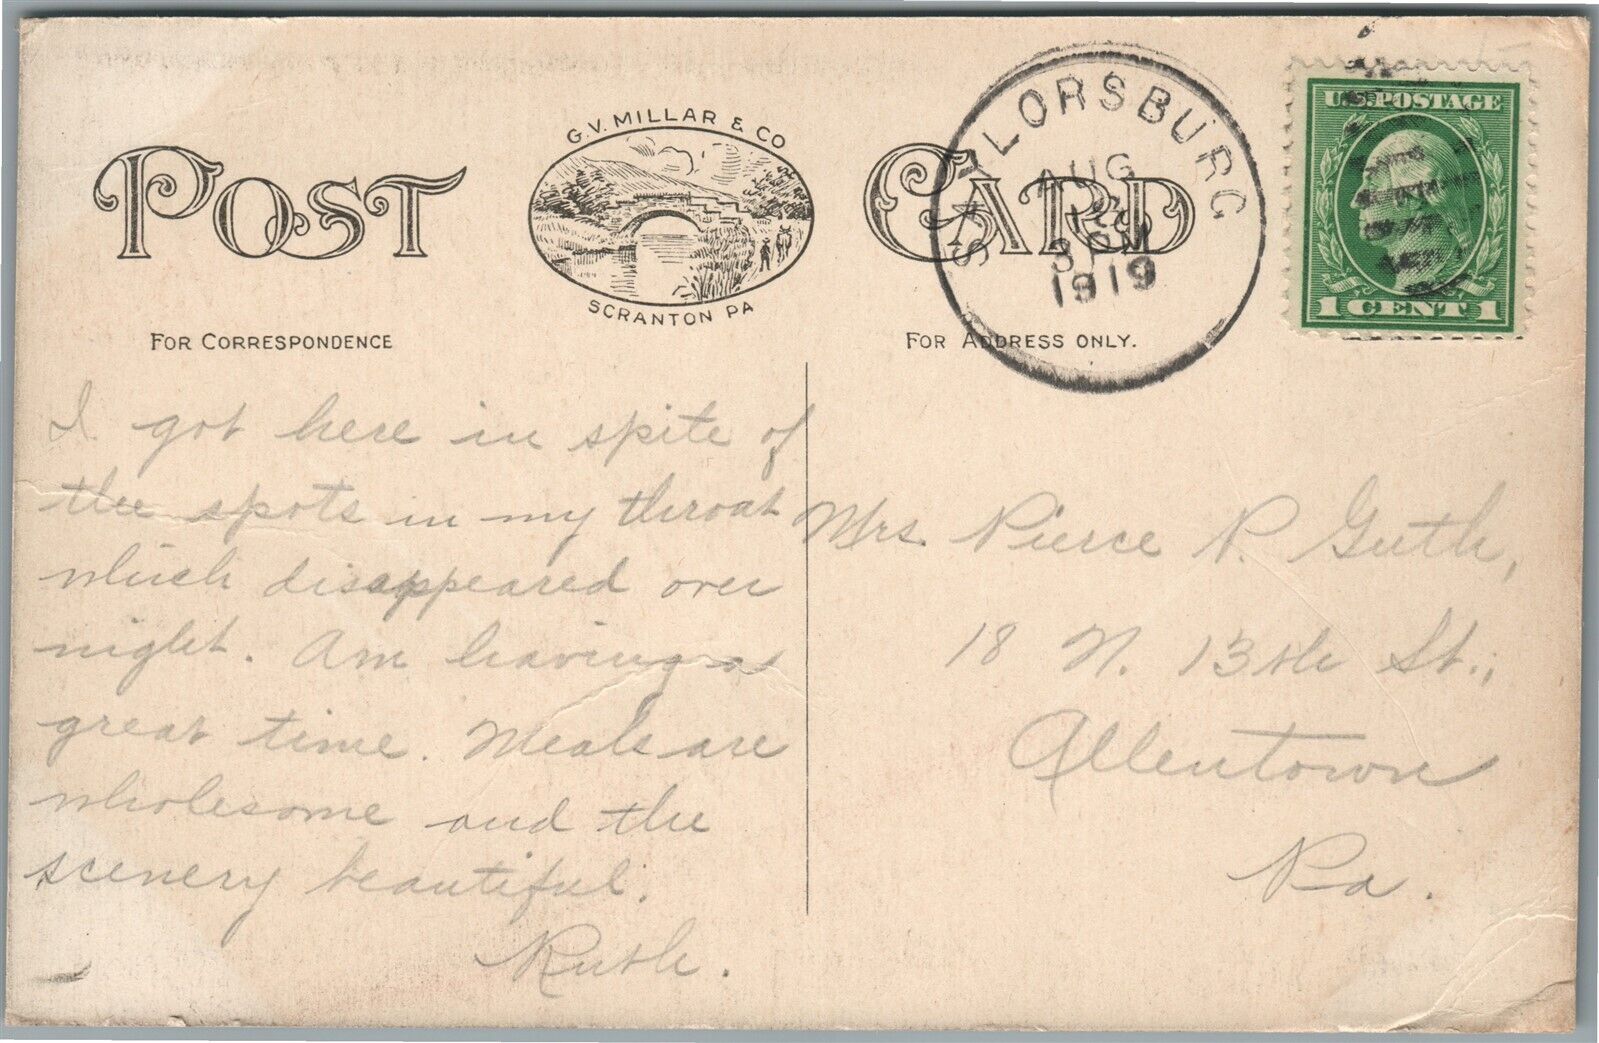 POST CARD
G.V. MILLAR & CO
SCRANTON PA
SAYLORSBURG
AUG
3 PM
1919
U.S. POSTAGE
1 CENT 1
FOR CORRESPONDENCE
FOR ADDRESS ONLY.
I got here in spite of
the spots in my throat
which disappeared over
night. Am having a
great time. Meals are
wholesome and the
scenery beautiful.
Ruth.
Mrs. Pierce P. Guth,
18 N. 13th St.,
Allentown
Pa.